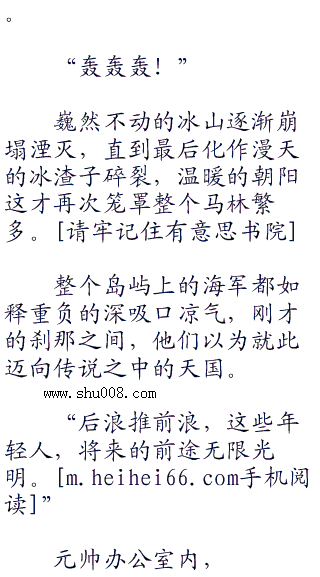 。
“轰轰轰！”
巍然不动的冰山逐渐崩
塌湮灭，直到最后化作漫天
的冰渣子碎裂，温暖的朝阳
这才再次笼罩整个马林繁
多。[请牢记住有意思书院]
整个岛屿上的海军都如
释重负的深吸口凉气，刚才
的刹那之间，他们以为就此
迈向传说之中的天国。
www.shu008.com
“后浪推前浪，这些年
轻人，将来的前途无限光
明。[m.heihei66.com手机阅
读]”
元帅办公室内，